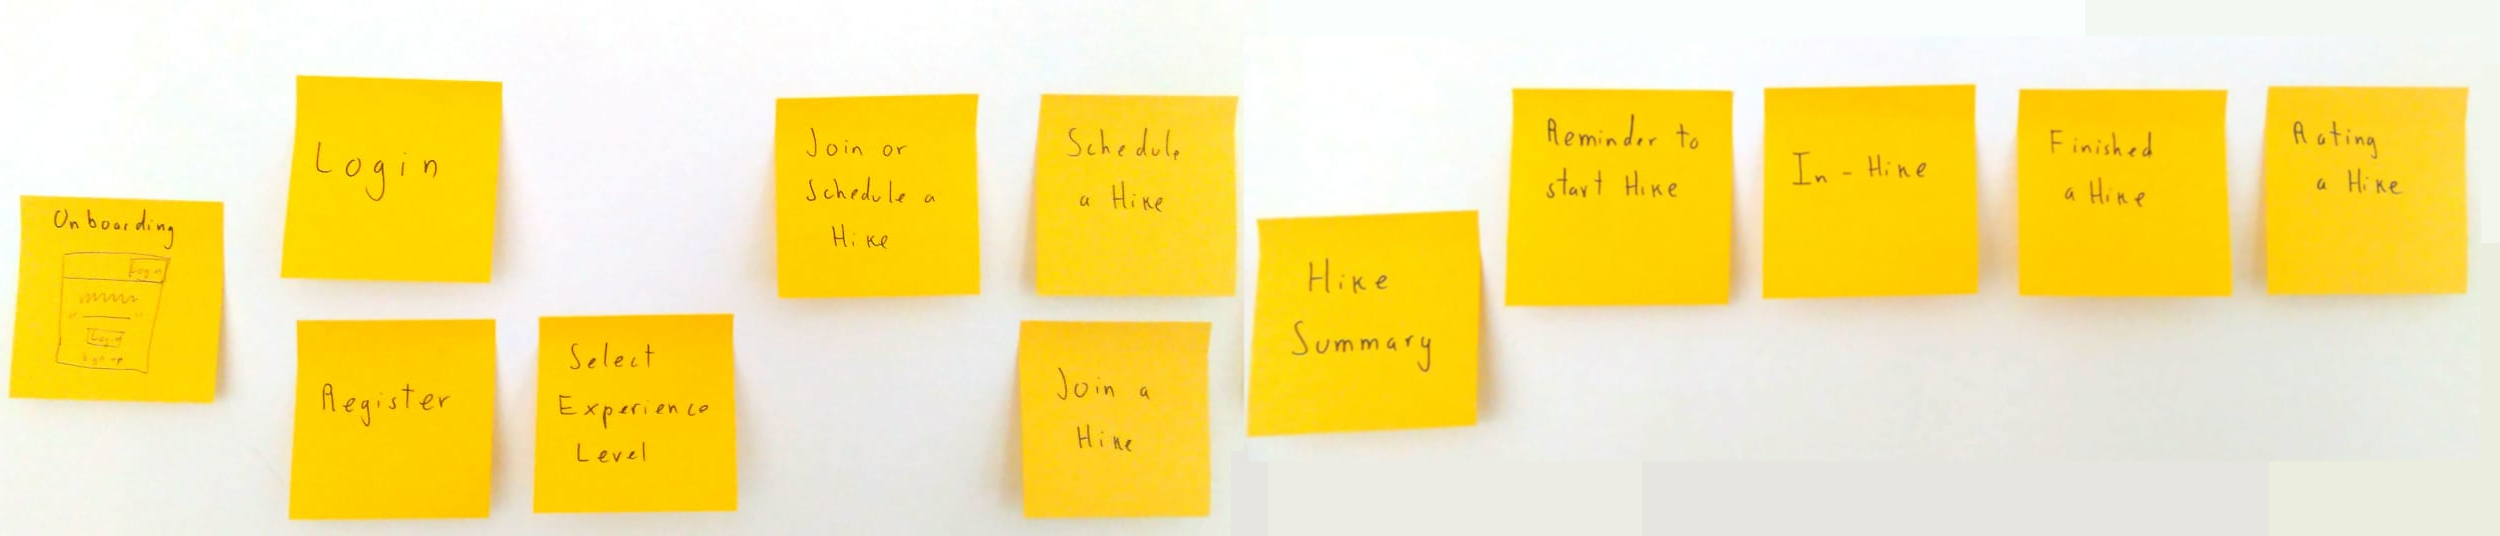 Onboarding
Login
Login
Sign up
Login
Register
Select
Experience
Level
Join or
Schedule a
Hike
Schedule
a Hike
Join a
Hike
Hike
Summary
Reminder to
start Hike
In-Hike
Finished
a Hike
Rating
a Hike